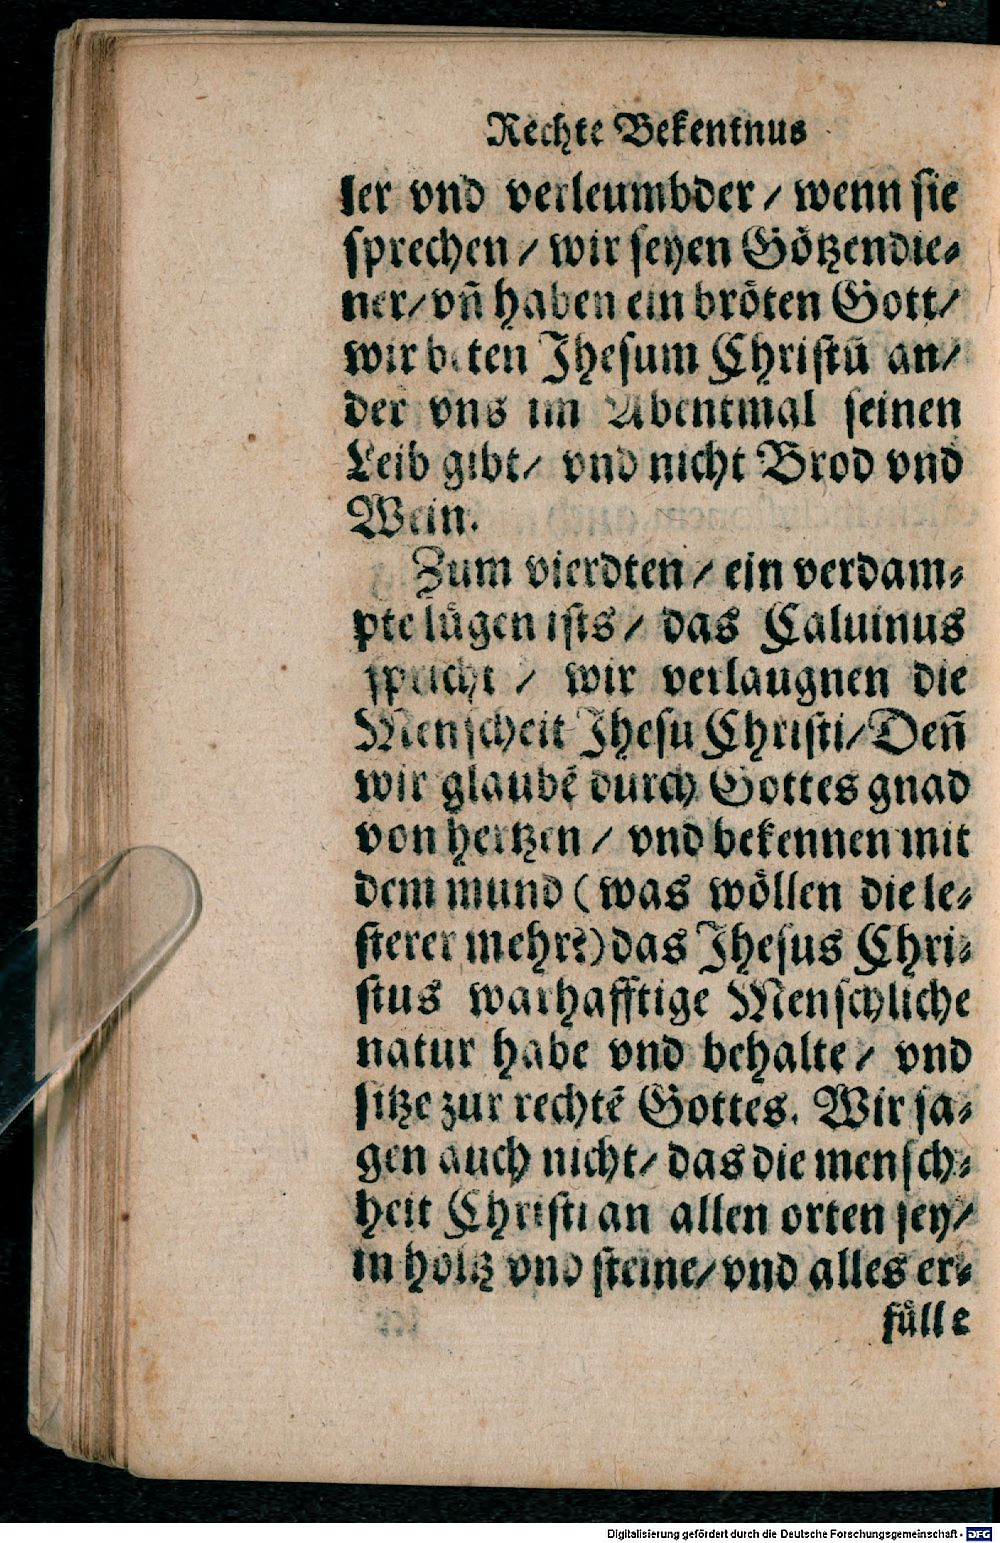 Rechte Bekentnus
ler vnd verleumbder / wenn sie
sprechen / wir seyen Götzendie-
ner / vñ haben ein bröten Gott /
wir beten Jhesum Christū an /
der vns im Abentmal seinen
Leib gibt / vnd nicht Brod vnd
Wein.
Zum vierdten / ein verdam-
pte lügen ists / das Caluinus
spricht / wir verlaugnen die
Menscheit Jhesu Christi / Deñ
wir glaubē durch Gottes gnad
von hertzen / vnd bekennen mit
dem mund (was wöllen die le-
sterer mehr?) das Jhesus Chri-
stus warhafftige Menschliche
natur habe vnd behalte / vnd
sitze zur rechtē Gottes. Wir sa-
gen auch nicht / das die mensch-
heit Christi an allen orten sey /
in holtz vnd steine / vnd alles er-
fülle
Digitalisierung gefördert durch die Deutsche Forschungsgemeinschaft - DFG